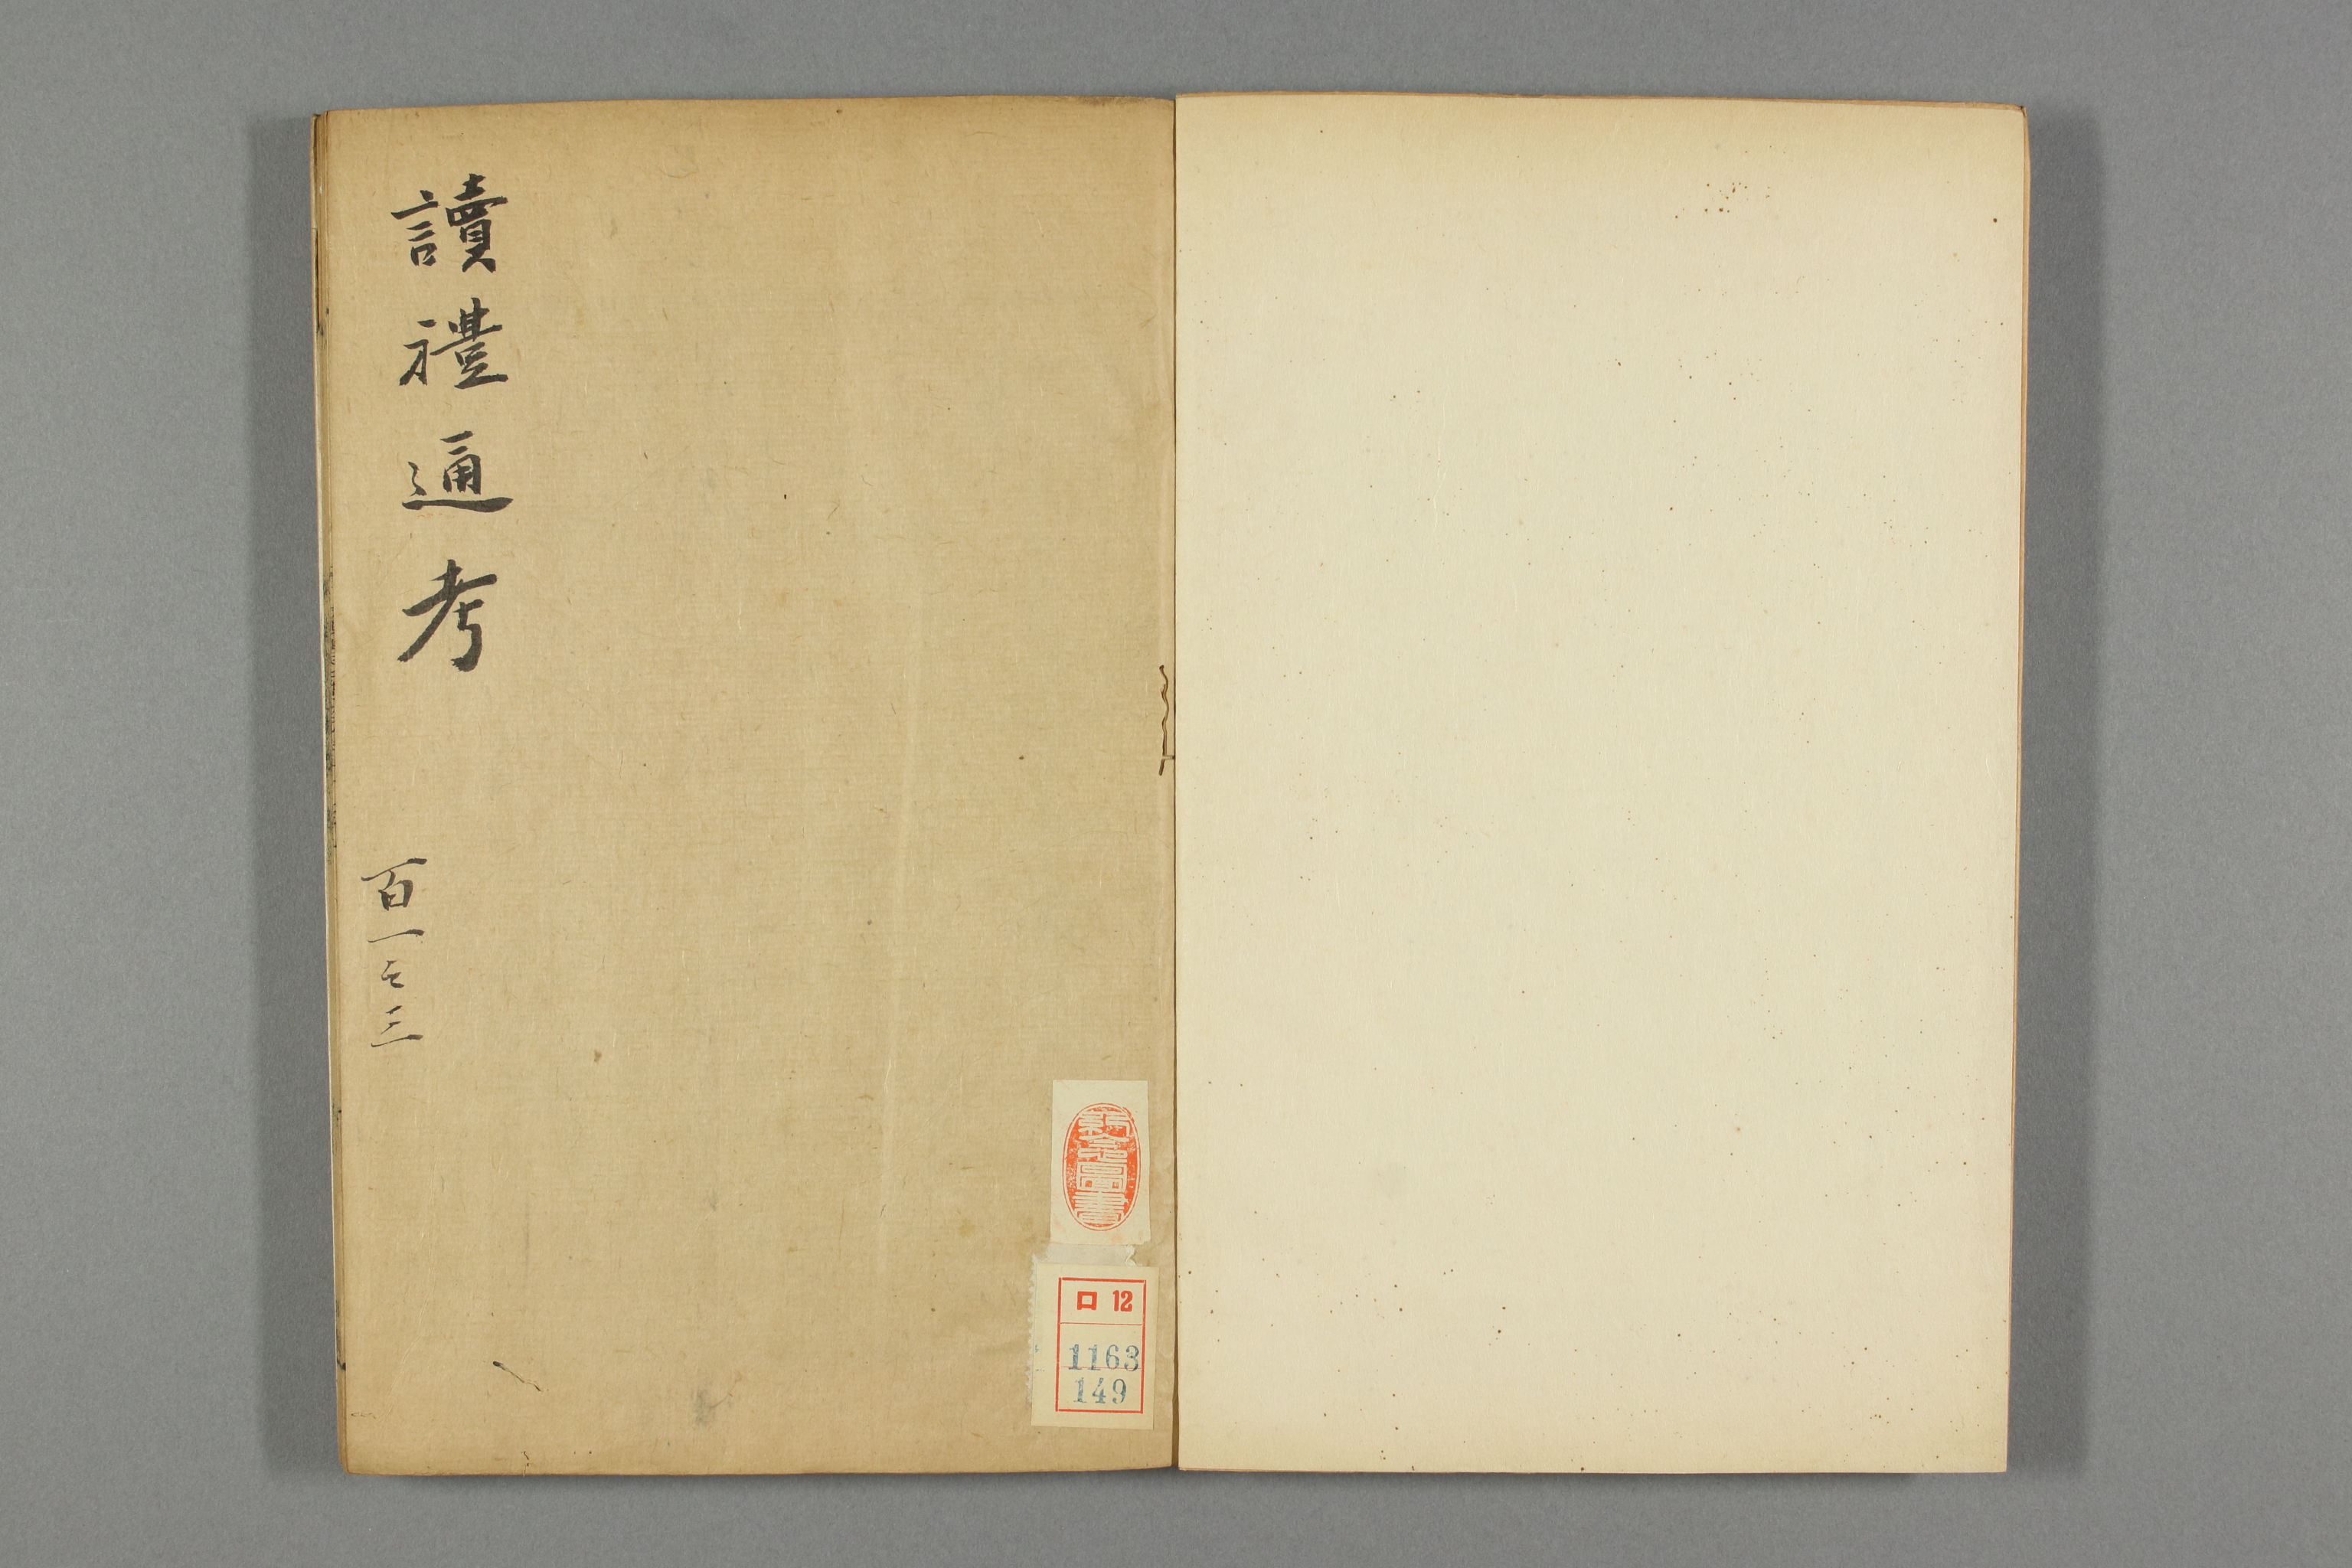 讀禮通考
百一之三
圖書
ロ 12
1163
149